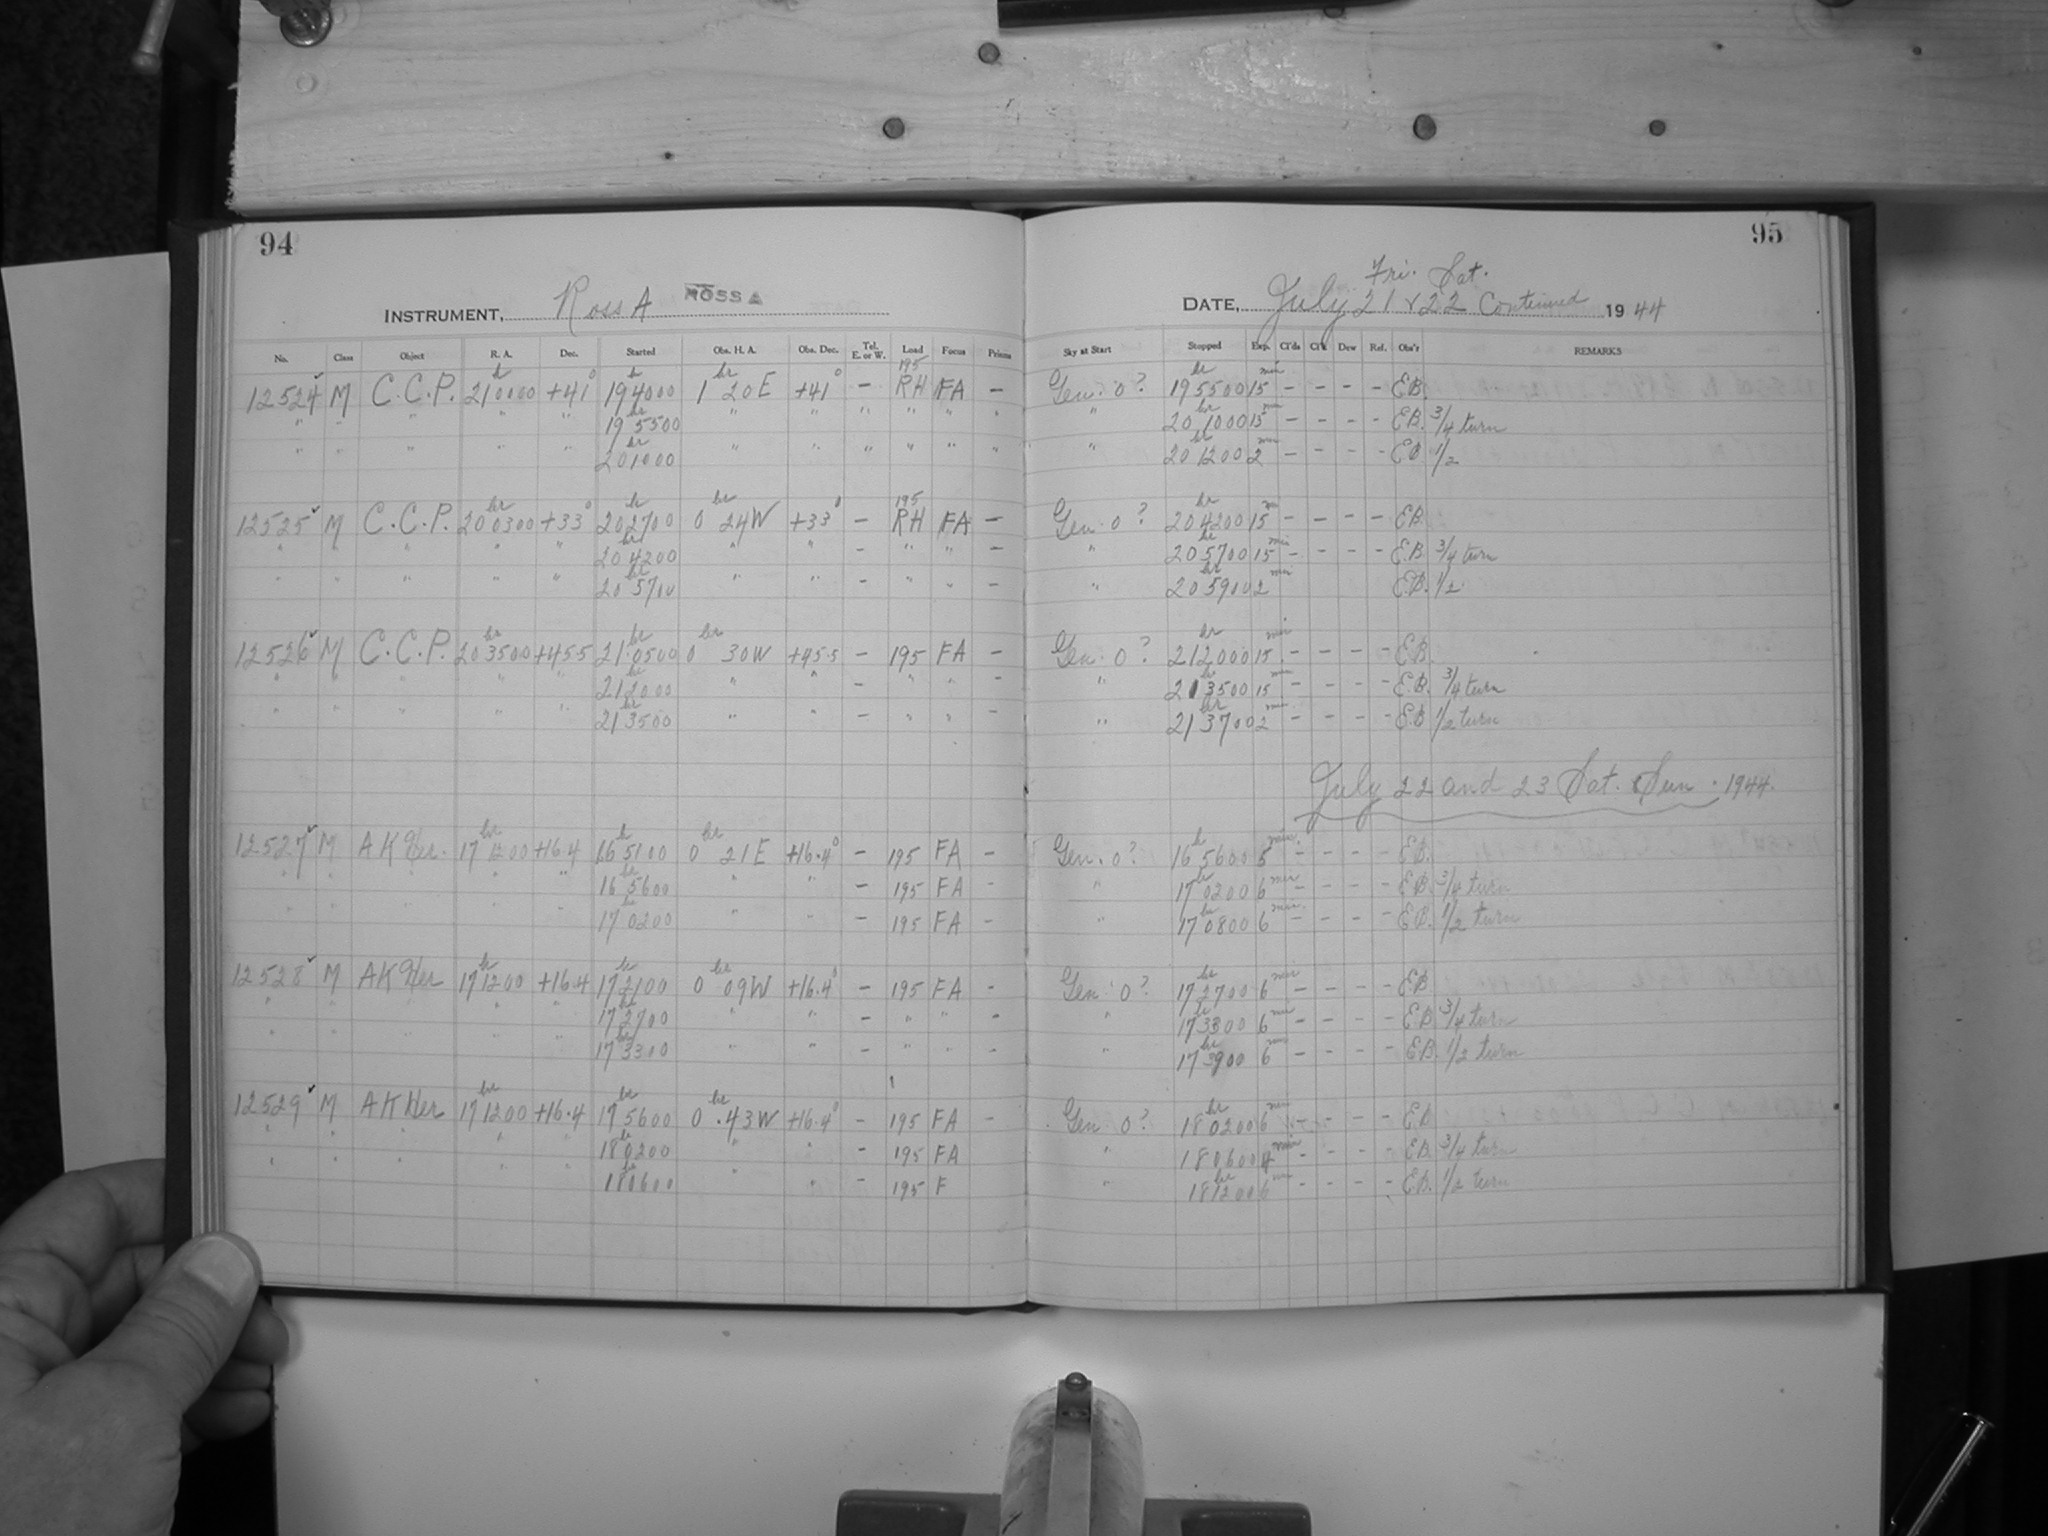 94
95
Fri. Sat.
INSTRUMENT, Ross A ROSS A
DATE, July 21 & 22 Continued 1944
No. Class Object R. A. Dec. Started Obs. H. A. Obs. Dec. Tel. E. or W. Load Focus Prisms Sky at Start Stopped Exp. Cl'ds Cl'k Dew Ref. Obs'r REMARKS
12524 ✓ M C.C.P. 21 00 00 +41° 19 h 40 00 1 hr 20 E +41° - 195 RH FA - Gen. 0? 19 hr 55 00 15 min - - - - E.B.
" " " " " 19 hr 55 00 " " " " " " " 20 hr 10 00 15 min - - - - E.B. 3/4 turn
" " " " " 20 hr 10 00 " " " " " " " 20 hr 12 00 2 min - - - - E.B 1/2
12525 ✓ M C.C.P. 20 hr 03 00 +33° 20 h 27 00 0 hr 24 W +33° - 195 RH FA - Gen. 0? 20 hr 42 00 15 m - - - - E.B.
" " " " " 20 hr 42 00 " " - " " - " 20 hr 57 00 15 min - - - - E.B. 3/4 turn
" " " " " 20 hr 57 00 " " - " " - " 20 hr 59 00 2 min E.B. 1/2
12526 ✓ M C.C.P. 20 hr 35 00 +45.5 21 hr 05 00 0 hr 30 W +45.5 - 195 FA - Gen. 0? 21 hr 20 00 15 min - - - - E.B.
" " " " " 21 hr 20 00 " " - " " - " 21 hr 35 00 15 min - - - - E.B. 3/4 turn
" " " " " 21 hr 35 00 " " - " " - " 21 hr 37 00 2 min - - - - E.B 1/2 turn
July 22 and 23 Sat. Sun. 1944.
12527 ✓ M AK Her. 17 hr 12 00 +16.4 16 h 51 00 0 hr 21 E +16.4° - 195 FA - Gen. 0? 16 h 56 00 5 min. - - - - E.B.
" " " " " 16 hr 56 00 " " - 195 FA - " 17 hr 02 00 6 min - - - - E.B. 3/4 turn
" " " " " 17 hr 02 00 " " - 195 FA - " 17 hr 08 00 6 min. - - - - E.B. 1/2 turn
12528 ✓ M AK Her 17 hr 12 00 +16.4 17 hr 21 00 0 hr 09 W +16.4° - 195 FA - Gen. 0? 17 hr 27 00 6 min - - - - E.B
" " " " " 17 hr 27 00 " " - " " - " 17 hr 33 00 6 min - - - - E.B 3/4 turn
" " " " " 17 hr 33 00 " " - " " - " 17 hr 39 00 6 min - - - - E.B. 1/2 turn
12529 ✓ M AK Her 17 hr 12 00 +16.4 17 hr 56 00 0 hr .43 W +16.4° - 195 FA - Gen. 0? 18 hr 02 00 6 min - - - - E.B
" " " " " 18 hr 02 00 " " - 195 FA " 18 06 00 4 min - - - - E.B. 3/4 turn
" " " " " 18 hr 06 00 " " - 195 F " 18 hr 12 00 6 min - - - - E.B. 1/2 turn